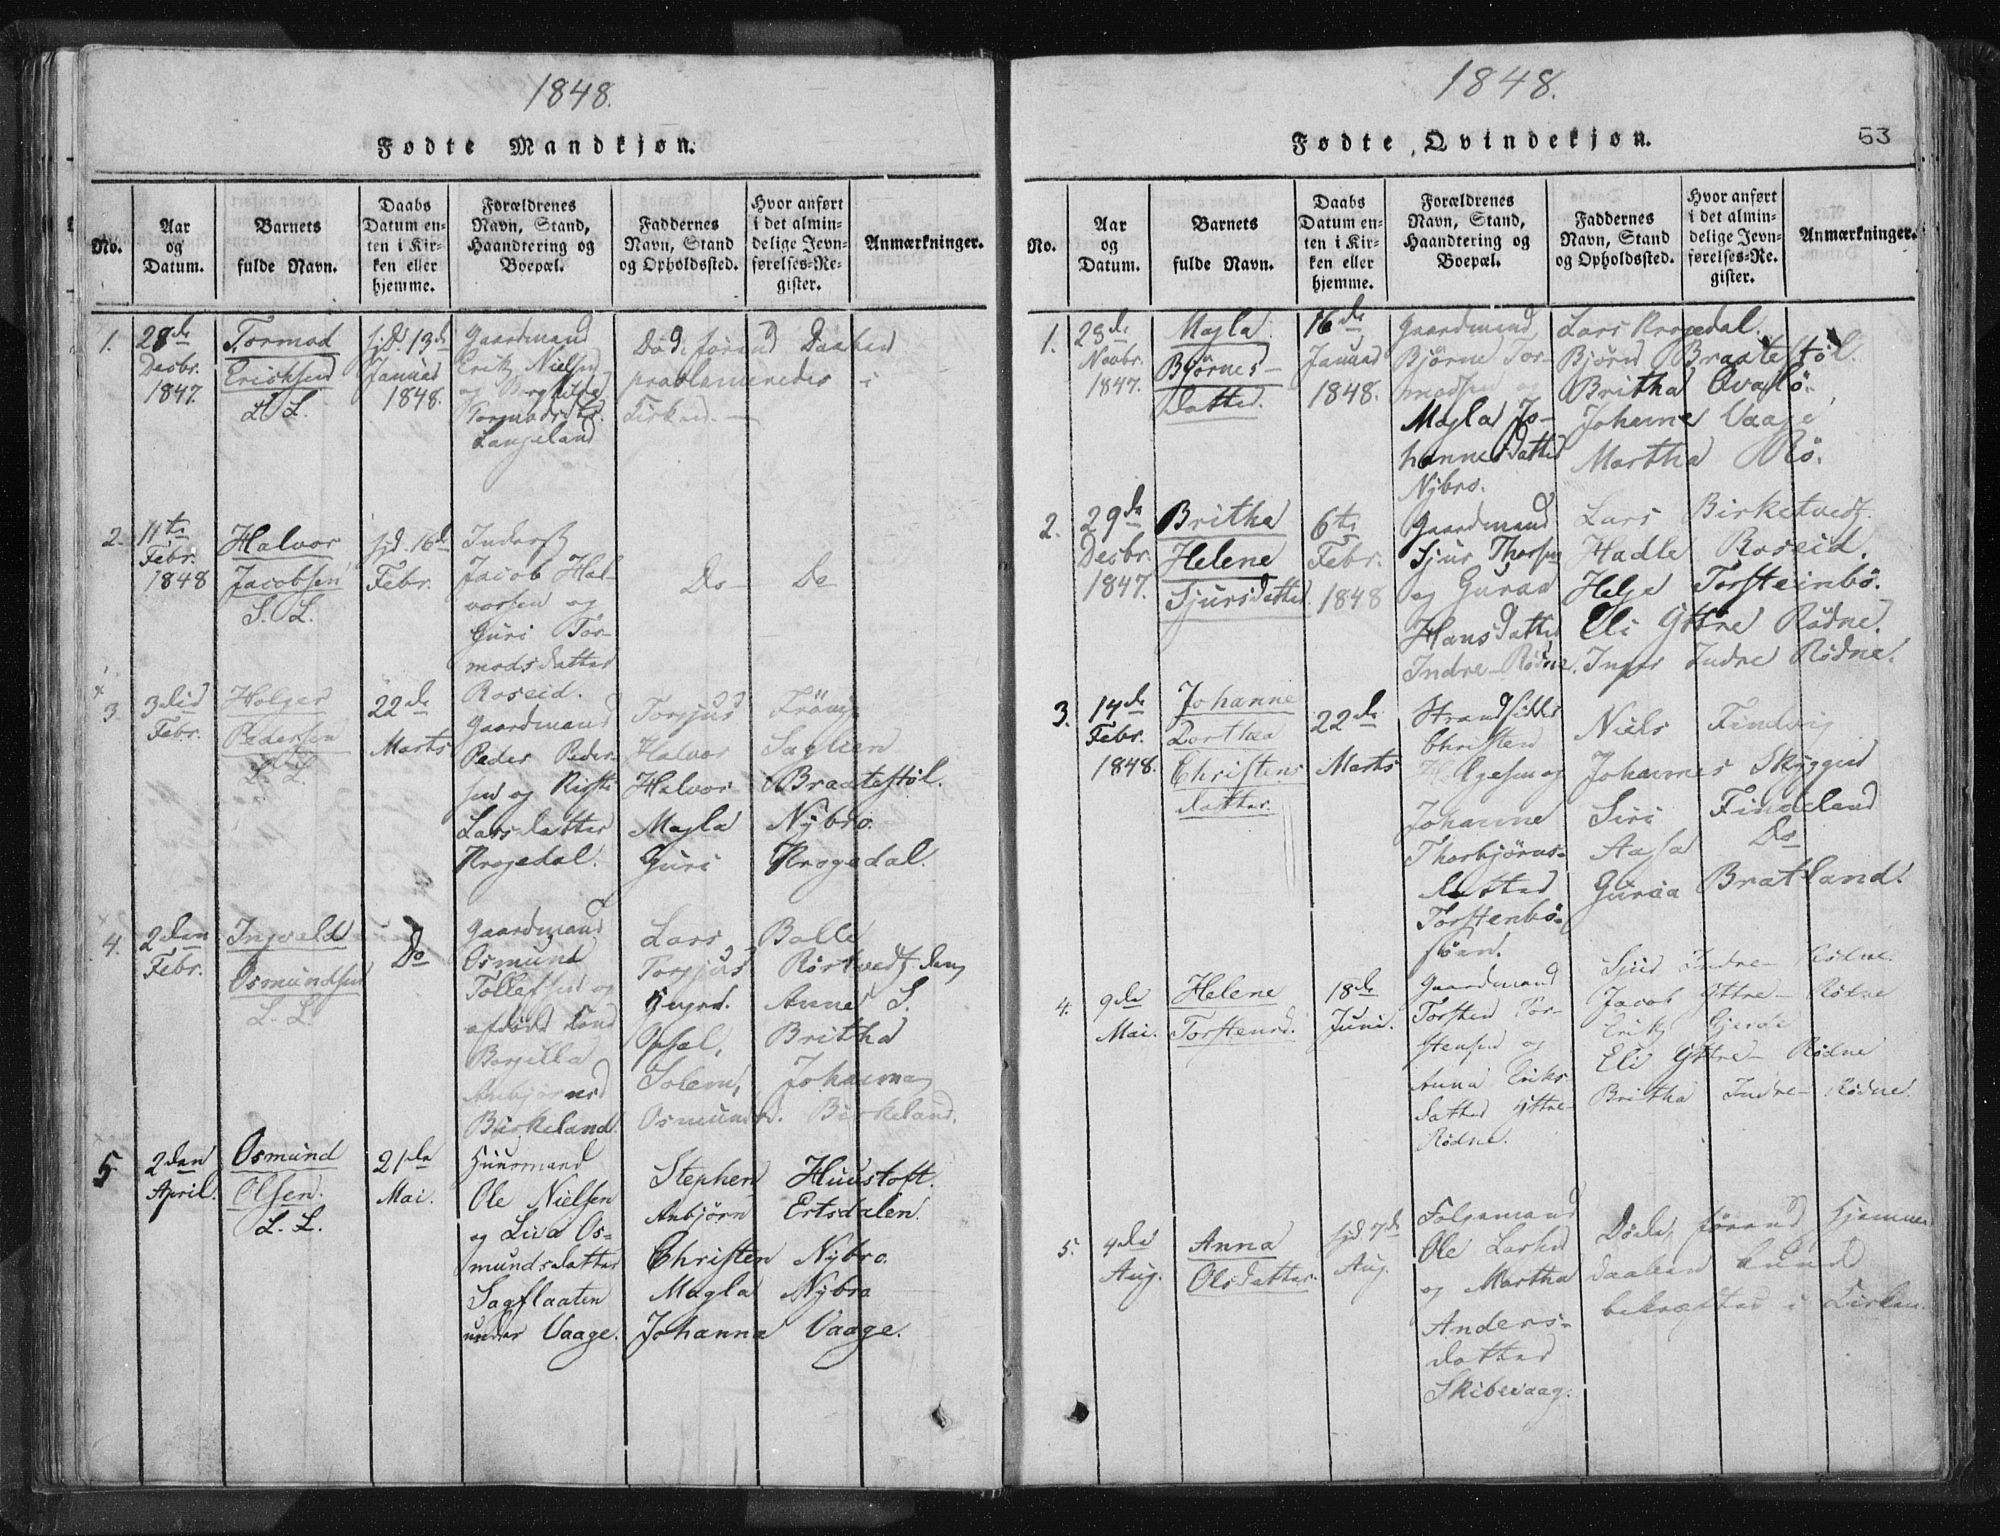 1848.
Fødte Mandkjøn.
No.
Aar
og
Datum.
Barnets
fulde Navn.
Daabs
Datum en-
ten i Kir-
ken eller
hjemme.
Forældrenes
Navn, Stand,
Haandtering og
Boepæl.
Faddernes
Navn, Stand
og Opholdssted.
Hvor anført
i det almin-
delige Jevn-
førelses-Re-
gister.
Anmærkninger.
1.
28de
Decbr.
1847.
Tormod
Erichsen
L. L.
hjd. 13de
Januar
1848.
Gaardmand
Erik Nielsen
og
Tormodsd.
Langeland
Død, førend Daaben
proclameredes i
Kirken.
2.
11te
Febr.
1848
Halvor
Jacobsen
S. L.
hjd. 16de
Febr.
Inderst
Jacob Hal
vorsen og
Guri Tor-
modsdatter
Roseid.
Do De
3
3die
Febr.
Holger
Pedersen
L. L.
22de
Marts
Gaardmand
Peder Peder-
sen og Kirsti
Larsdatter
Krogedal.
Torgjus
Halvor Saglien
Halvor Braatestøl.
Magla Nybro.
Guri Krogedal.
4.
2den
Febr.
Ingvald
Osmundsen
L. L.
Do
Gaardmand
Osmund
Tollefsen og
afdøde Kone
Borgilla
Anbjørnsd
Birkeland.
Lars Balle
Torgjus Rørtvedt, den
Anne S.
Opsal, Britha
Solem, Johanna
Osmundsd. Birkeland.
5
2den
April.
Osmund
Olsen.
L. L.
21de
Mai.
Huusmand
Ole Nielsen
og Liva Os-
mundsdatter
Sagflaaten
under Vaage.
Stephen Huustoft.
Anbjørn Ertsdalen.
Christen Nybro.
Magla Nybro
Johanna Vaage.
1848.
Fødte Qvindekjøn.
53
No.
Aar
og
Datum.
Barnets
fulde Navn.
Daabs
Datum en-
ten i Kir-
ken eller
hjemme.
Forældrenes
Navn, Stand,
Haandtering og
Boepæl.
Faddernes
Navn, Stand
og Opholdssted.
Hvor anført
i det almin-
delige Jevn-
førelses-Re-
gister.
Anmærkninger.
1.
28de
Novbr.
1847.
Magla
Bjørnes-
datter.
16de
Januar
1848.
Gaardmand
Bjørne Tor-
modsen og
Magla Jo-
hannesdatter
Nybro.
Lars Krogedal.
Bjørn Braatestøl.
Britha Qvalø.
Johanne Vaage
Martha Rø.
2.
29de
Decbr.
1847.
Britha
Helene
Sjursdatter
6te
Febr.
1848
Gaardmand
Sjur Thorsen
og Guraa
Hansdatter
Indre-Rødne.
Lars Birketvedt.
Hadle Roseid.
Helge Torsteinbø.
Eli Yttre Rødne.
Inger Indre Rødne.
3.
14de
Febr.
1848.
Johanne
Dorthea
Christens
datter.
22de
Marts
Strandsidder
Christen
Helgesen og
Johanne
Thorbjørns-
datter
Torstenbø-
støen.
Niels Findvig
Johannes Skyggen
Siri Findeland
Aasa Do
Guraa Bratland.
4.
9de
Mai.
Helene
Torstensd.
18de
Juni.
Gaardmand
Torsten Tor-
stensen og
Anna Eriks-
datter Yttre-
Rødne.
Sjur Indre-Rødne.
Jacob Yttre-Rødne
Erik Gjerde
Eli Yttre-Rødne
Britha Indre-Rødne.
5.
4de
Aug.
Anna
Olsdatter.
hjd. 7de
Aug.
Følgemand
Ole Larsen
og Martha
Anders-
datter
Skibevaag.
Døde, førend Hjemme
daaben kunde
bekræftes i Kirken.